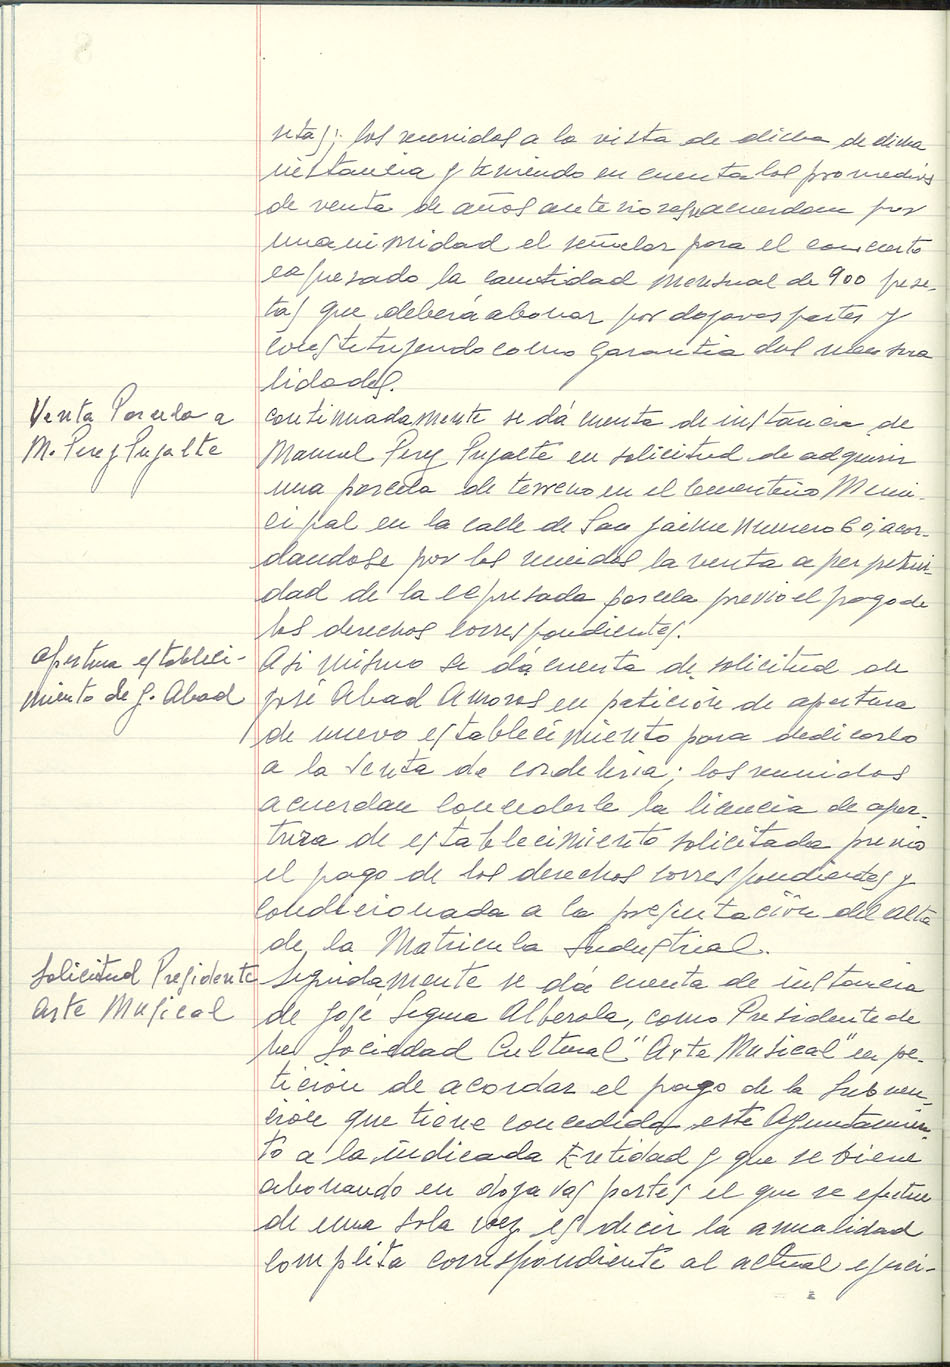 setas; los reunidos a la vista de dicha de dicha
instancia y teniendo en cuenta los promedios
de venta de años anteriores, acuerdan por
unanimidad el señalar para el concierto
expresado la cantidad mensual de 900 pese-
tas que deberá abonar por dozavas partes y
constituyendo como garantia dos mensua
lidades.
Venta Parcela a
M. Perez Pujalte
continuadamente se dá cuenta de instancia de
Manuel Perez Pujalte en solicitud de adquirir
una parcela de terreno en el Cementerio Muni-
cipal en la calle de San Jaime numero 60; acor-
dandose por los reunidos la venta a perpetui-
dad de la expresada parcela previo el pago de
los derechos correspondientes.
Apertura estableci-
miento de J. Abad
Asi mismo se dá cuenta de solicitud de
José Abad Amoros en petición de apertura
de nuevo establecimiento para dedicarlo
a la venta de cordeleria; los reunidos
acuerdan concederle la licencia de aper-
tura de establecimiento solicitada previo
el pago de los derechos correspondientes y
condicionada a la presentación del alta
de la Matricula Industrial.
Solicitud Presidente
Arte Musical
Seguidamente se dá cuenta de instancia
de José Segura Alberola, como Presidente de
la Sociedad Cultural "Arte Musical" en pe-
tición de acordar el pago de la Subven-
ción que tiene concedida este Ayuntamien-
to a la indicada Entidad y que se viene
abonando en dozavas partes el que se efectue
de una sola vez es decir la anualidad
completa correspondiente al actual ejerci-